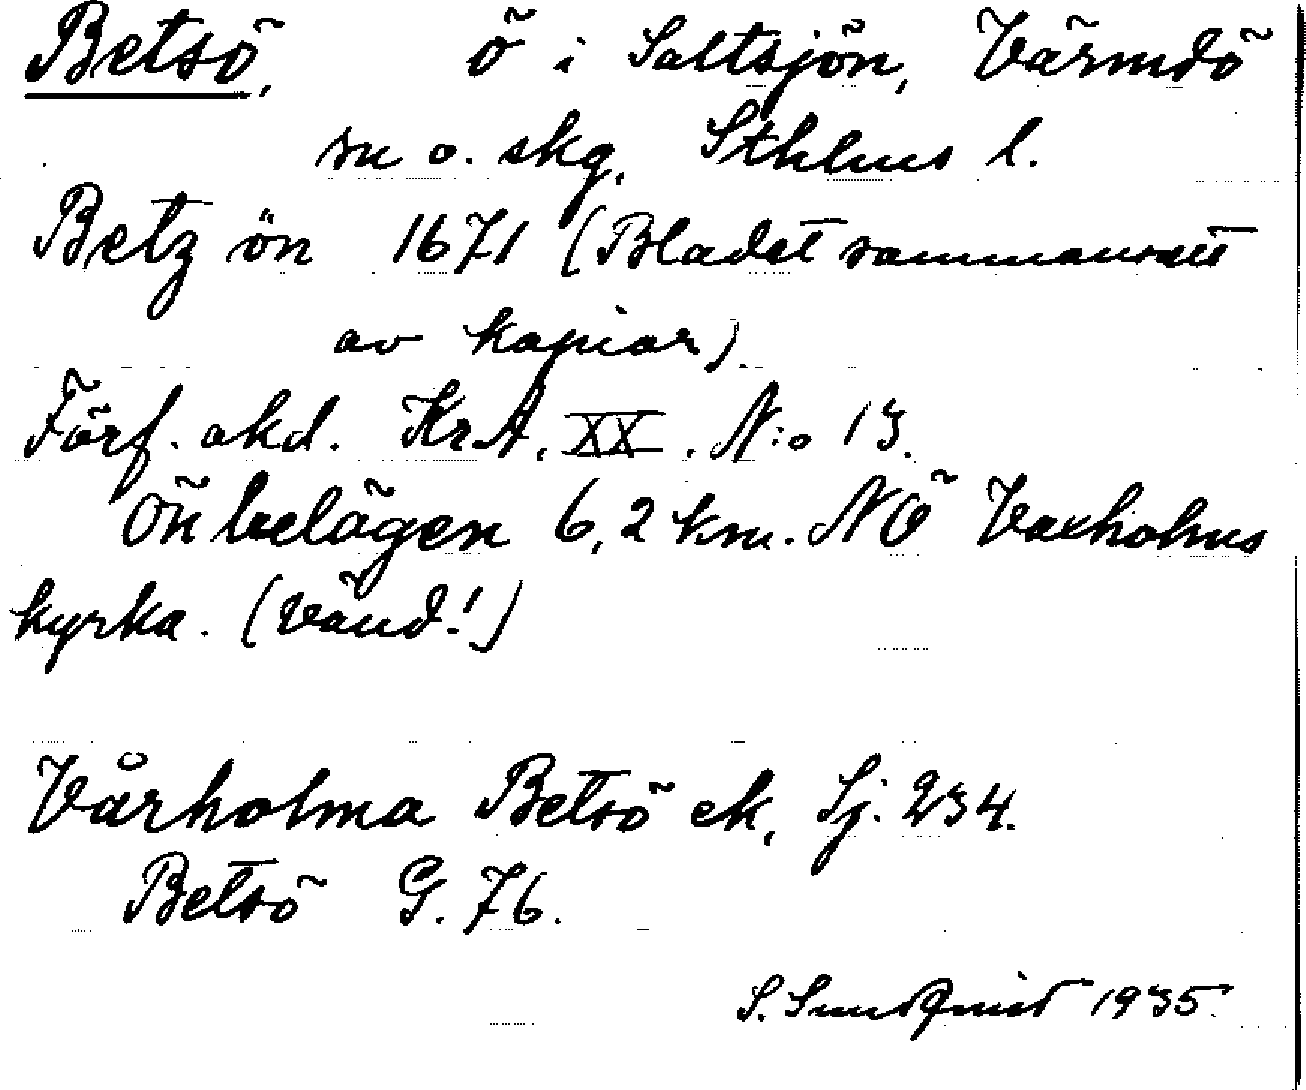 Betsö, ö i Saltsjön, Värmdö
sn o. skg, Sthlms l.
Betz ön 1671 (Bladet sammansatt
av kopior).
Förf. okd. KrA, XX. N:o 13.
Ön belägen 6,2 km. NÖ Vaxholms
kyrka. (Vänd!)
Vårholma Betsö ek, Sj. 234.
Betsö G. 76.
S. Sundqvist 1935.